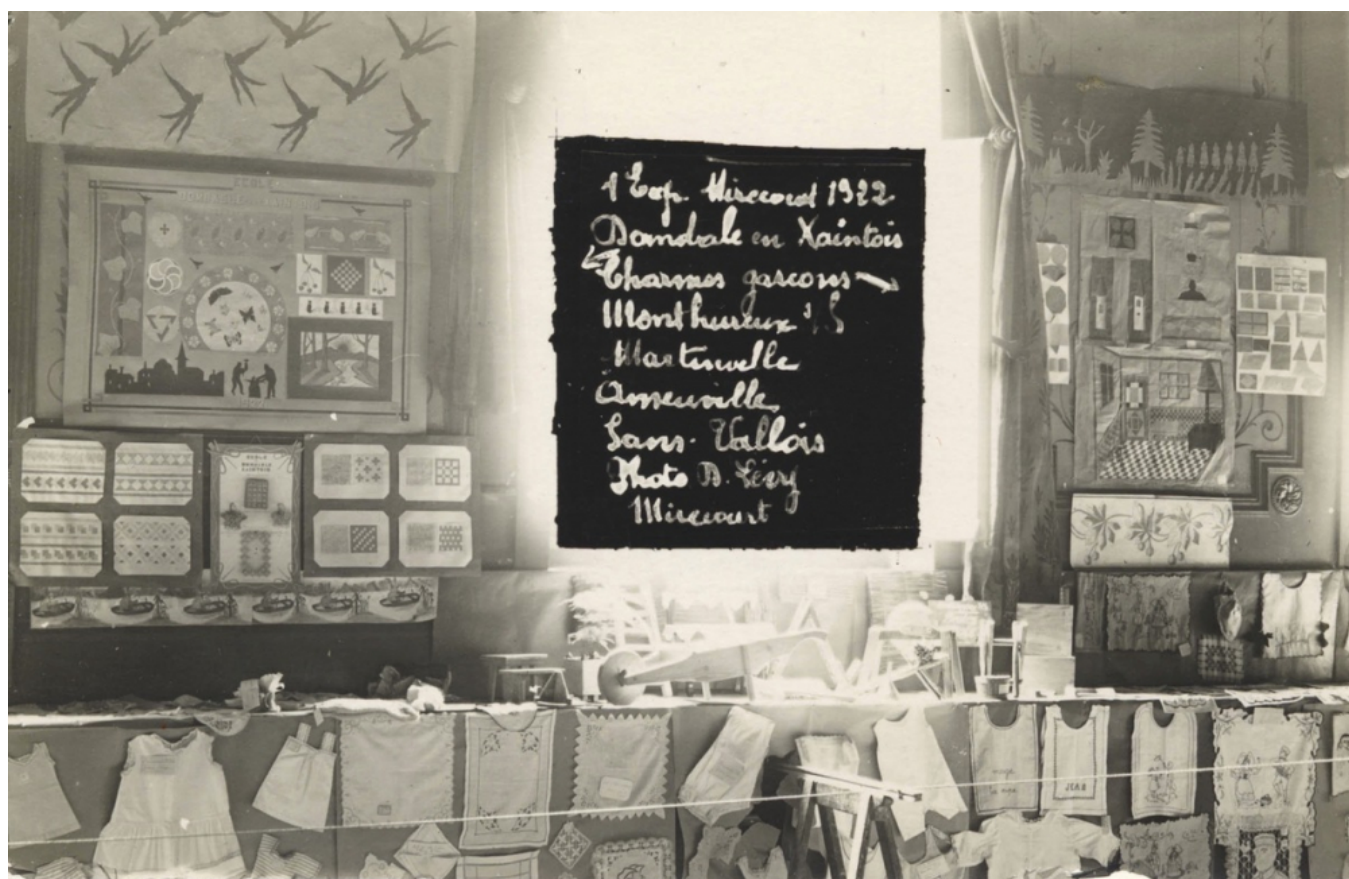 1 Exp. Mirecourt 1922
Dombasle en Xaintois
← Charmes garçons →
Monthureux s/S
Martinvelle
Ameuvelle
Sans-Vallois
Photo D. Lévy
Mirecourt
ECOLE
ECOLE
JEAN